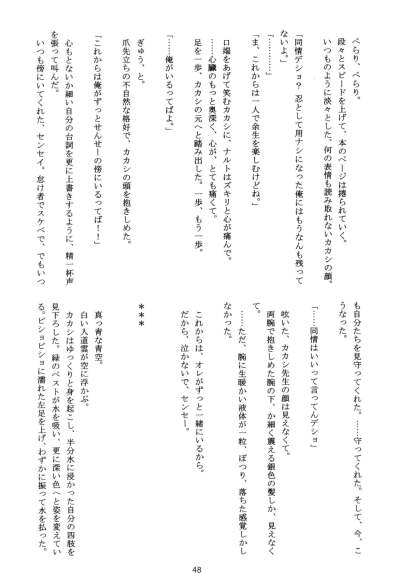 ぺらり、ぺらり。
段々とスピードを上げて、本のページは捲られていく。
いつものように淡々とした、何の表情も読み取れないカカシの顔。
「同情デショ？ 忍として用ナシになった俺にはもうなんも残って
ないよ。」
「…………」
「ま、これからは一人で余生を楽しむけどね。」
口端をあげて笑むカカシに、ナルトはズキリと心が痛んで。
……心臓のもっと奥深く、心が、とても痛くて。
足を一歩、カカシの元へと踏み出した。一歩、もう一歩。
「……俺がいるってばよ。」
ぎゅう、と。
爪先立ちの不自然な格好で、カカシの頭を抱きしめた。
「これからは俺がずっとせんせーの傍にいるってば！！」
心もとないか細い自分の台詞を更に上書きするように、精一杯声
を張って叫んだ。
いつも傍にいてくれた、センセイ。怠け者でスケベで、でもいつ
も自分たちを見守ってくれた。……守ってくれた。そして、今、こ
うなった。
「……同情はいいって言ってんデショ」
呟いた、カカシ先生の顔は見えなくて。
両腕で抱きしめた腕の下、か細く震える銀色の髪しか、見えなく
て。
……ただ、腕に生暖かい液体が一粒、ぽつり、落ちた感覚しかし
なかった。
これからは、オレがずっと一緒にいるから。
だから、泣かないで、センセー。
***
真っ青な青空。
白い入道雲が空に浮かぶ。
カカシはゆっくりと身を起こし、半分水に浸かった自分の四肢を
見下ろした。緑のベストが水を吸い、更に深い色へと姿を変えてい
る。ビショビショに濡れた左足を上げ、わずかに振って水を払った。
48